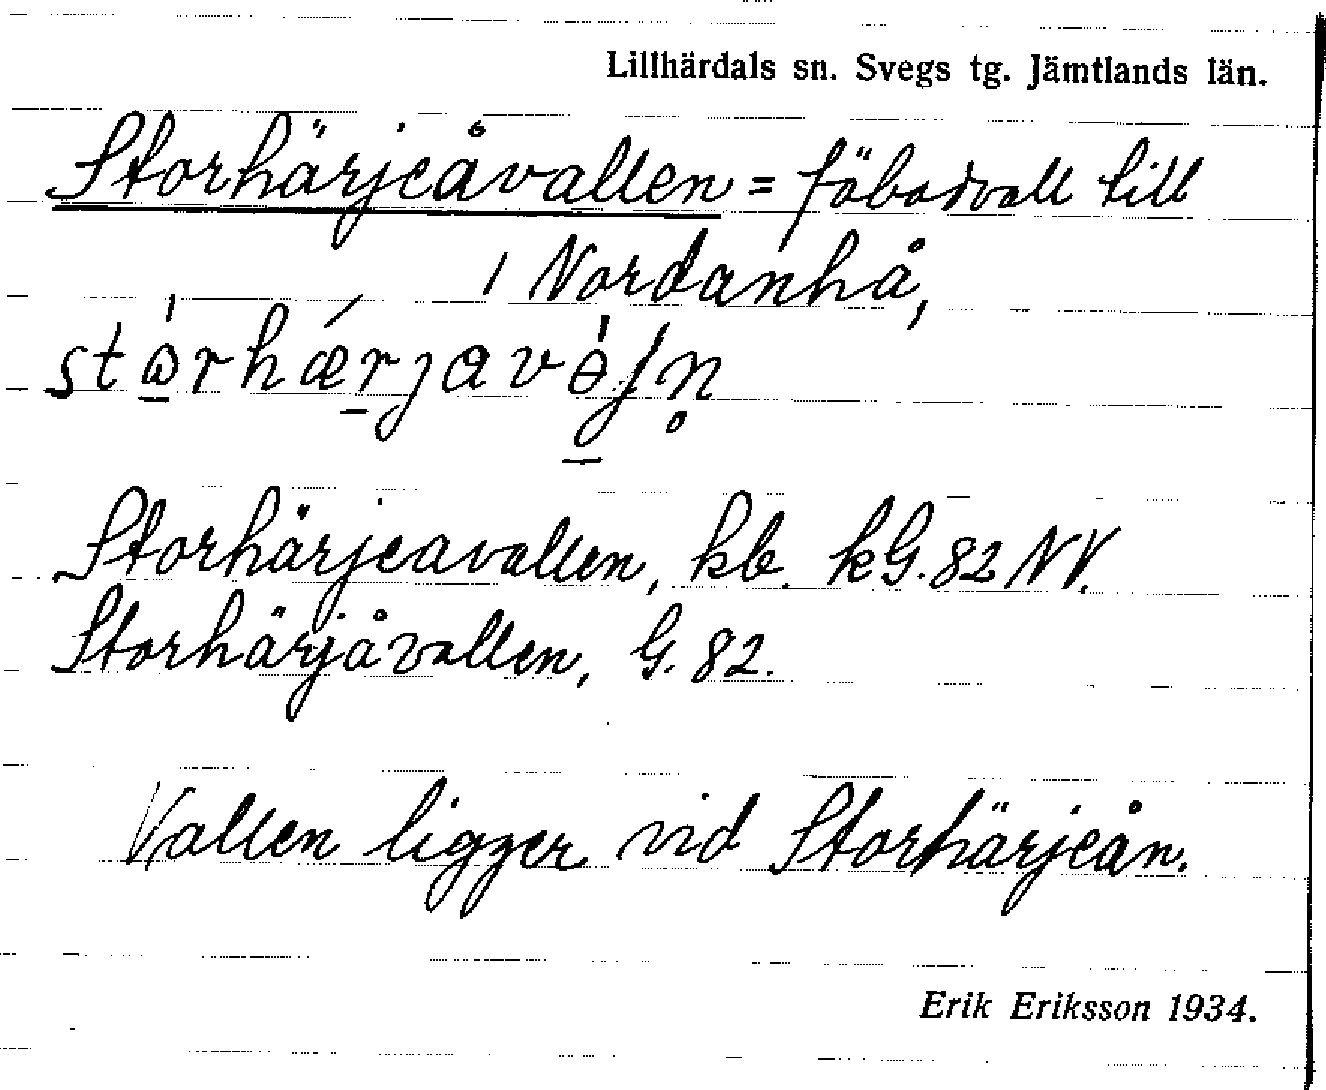 Lillhärdals sn. Svegs tg. Jämtlands län.
Storhärjeåvallen = fäbodvall till
Nordanhå,
Storhärjeavallen, kb. kG. 82 NV.
Storhärjåvallen, G. 82.
Vallen ligger vid Storhärjeån.
Erik Eriksson 1934.